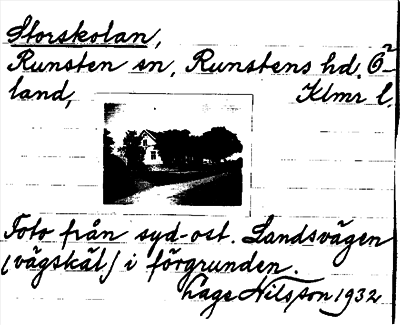 Storskolan,
Runsten sn, Runstens hd, Ö-
land, Klmr l.
Foto från syd-ost. Landsvägen
(vägskäl) i förgrunden.
Lage Nilsson 1932